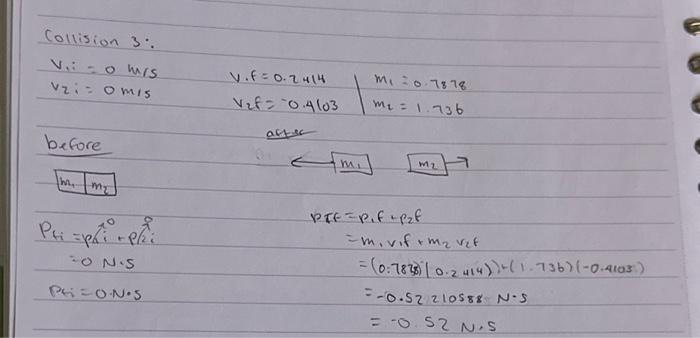 Collision 3:
V1i = 0 m/s
V2i = 0 m/s
V1f = 0.2414
V2f = -0.4103
m1 = 0.7878
m2 = 1.736
before
after
m1 m2
m1
m2
Pti = p1i + p2i
0 0
= 0 N·s
Pti = 0 N·s
Ptf = p1f + p2f
= m1v1f + m2v2f
= (0.7878)(0.2414) + (1.736)(-0.4103)
= -0.52210588 N·s
= -0.52 N·s